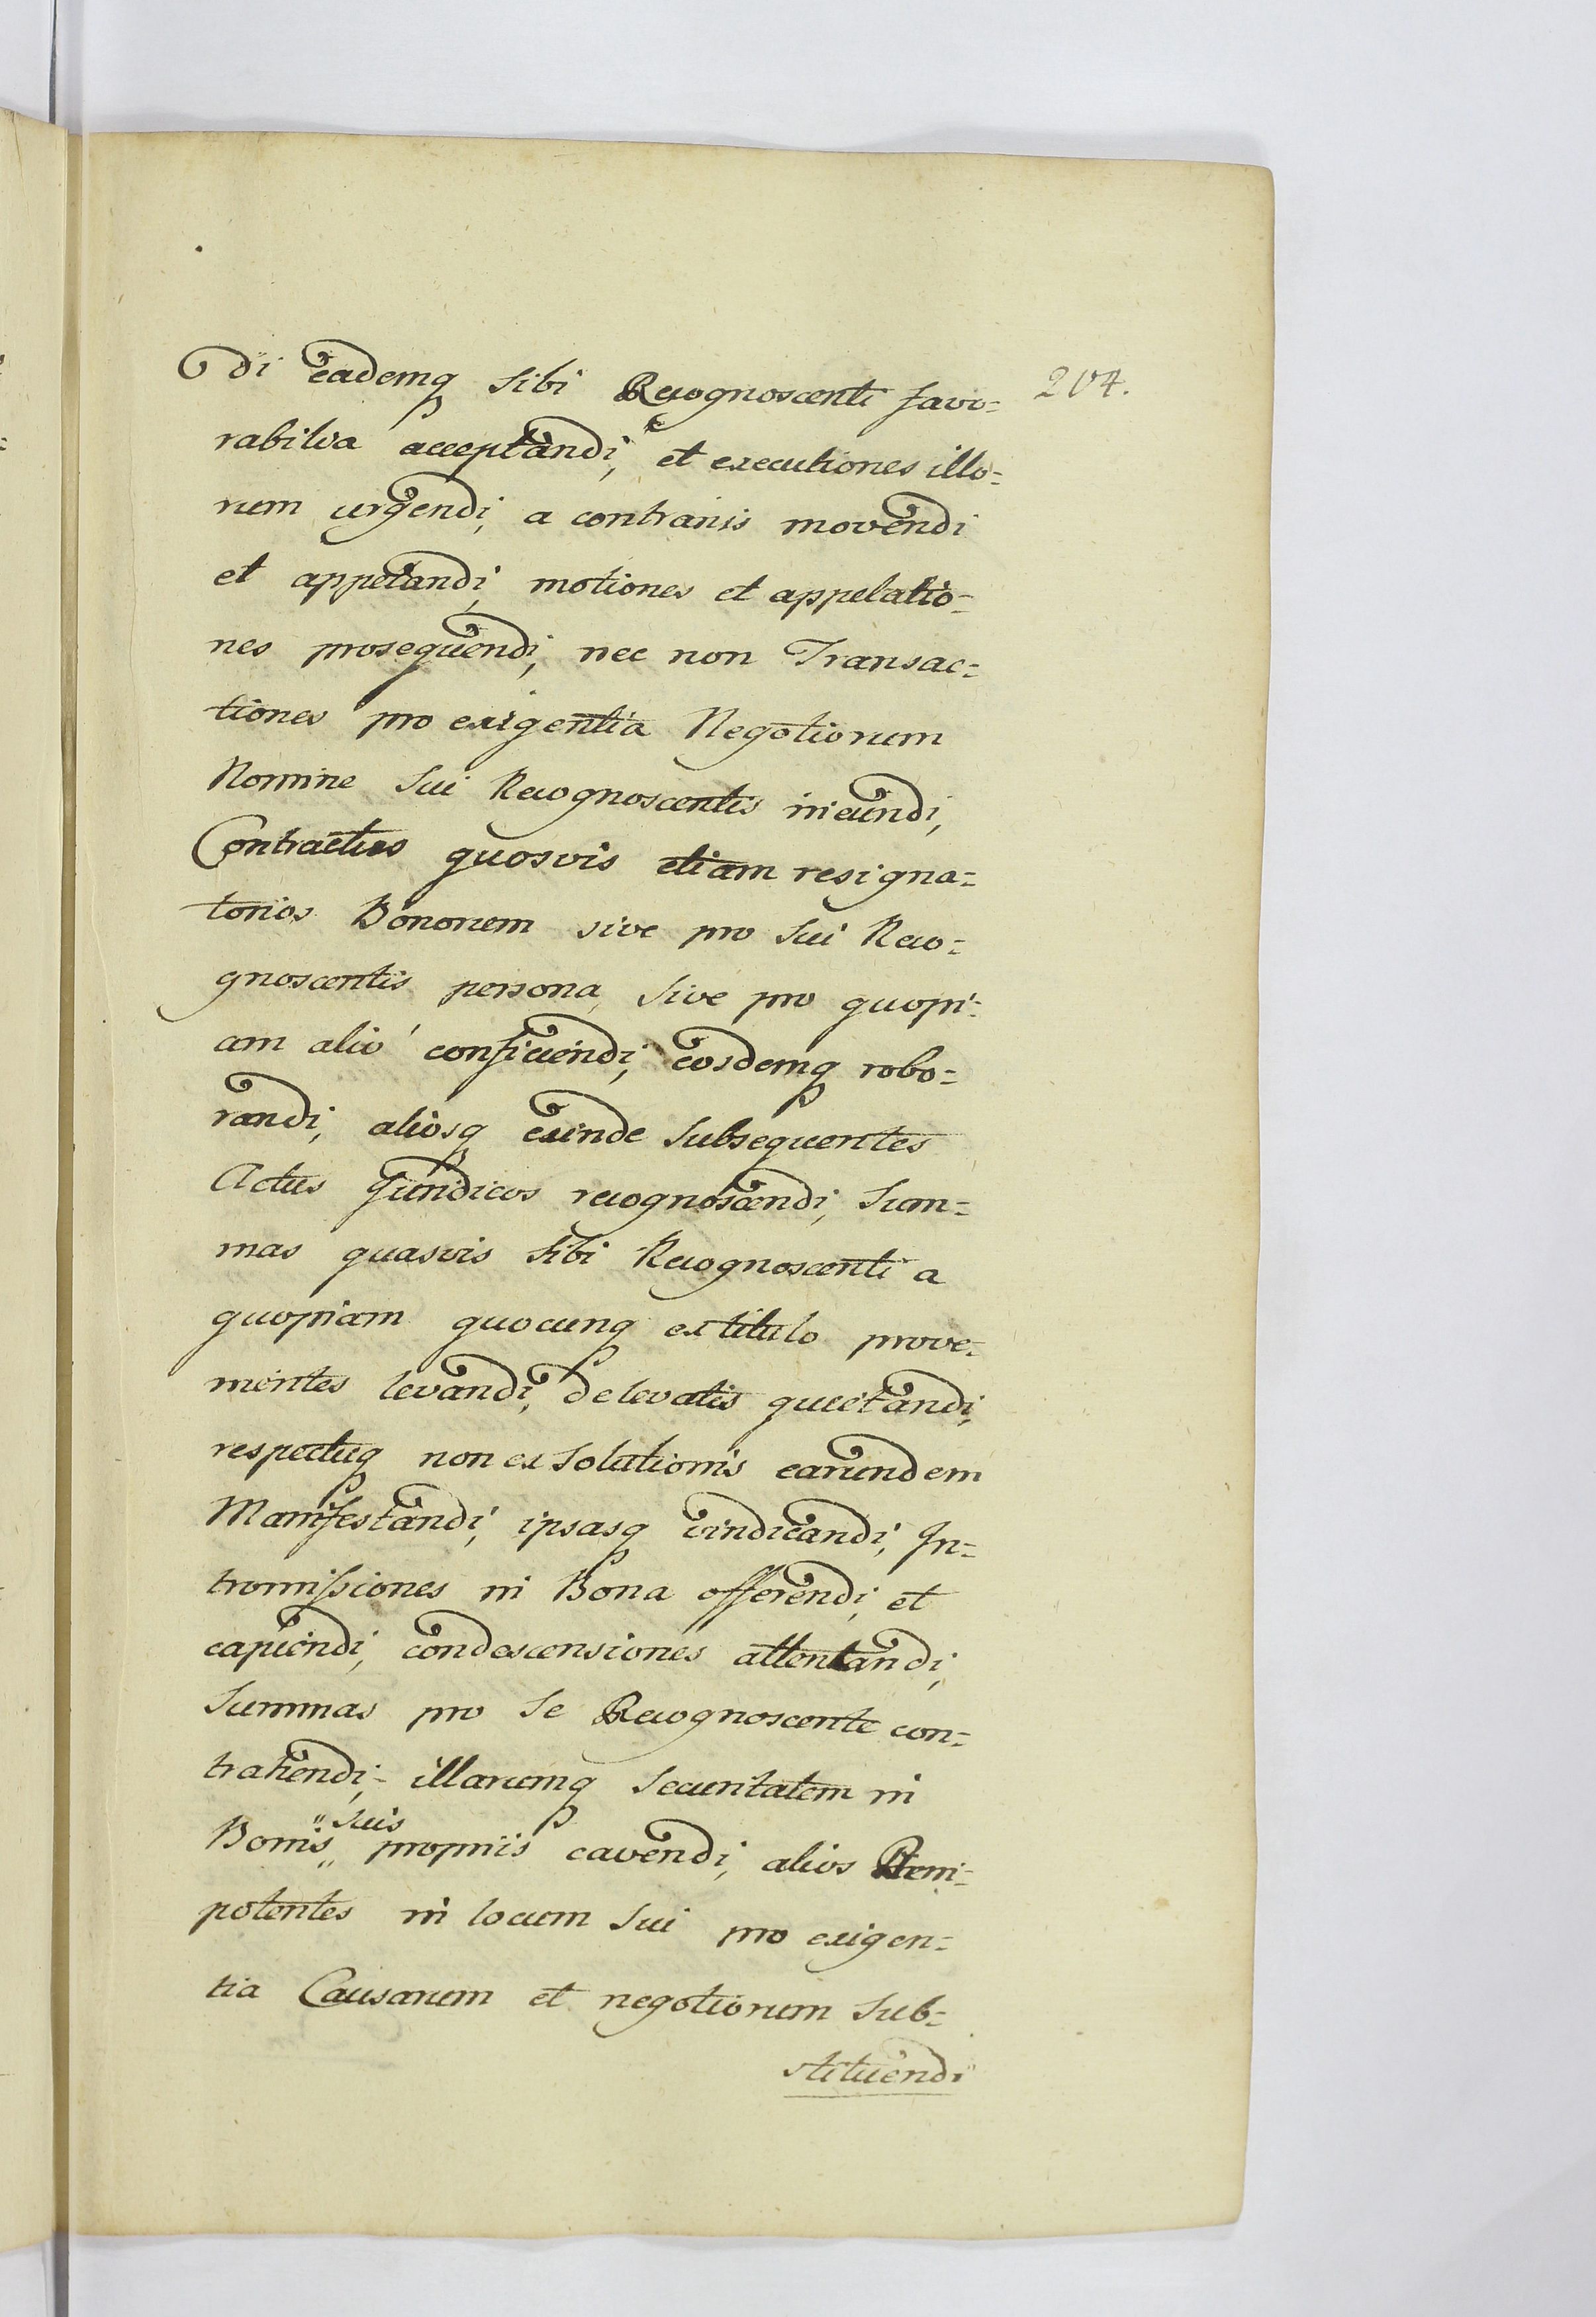 di eademq sibi Recognoscenti favo=
204.
rabilia acceptandi, et executiones illo=
rum urgendi, a contrariis movendi
et appelandi, motiones et appelatio=
nes prosequendi, nec non Transac=
tiones pro exigentia Negotiorum
Nomine sui Recognoscentis ineundi,
Contractus quosvis etiam resigna=
torios Bonorum sive pro sui Reco=
gnoscentis persona, sive pro quopi=
am alio conficiendi, eosdemq robo=
randi, aliosq exinde subsequentes
Actus Juridicos recognoscendi, Sum=
mas quasvis sibi Recognoscenti a
quopiam quocunq ex titulo prove=
nientes levandi, de levatis quietandi,
respectuq non exsolutionis earundem
Manifestandi, ipsasq vindicandi, In=
tromissiones in Bona offerendi, et
capiendi, condescensiones attentandi,
Summas pro se Recognoscente con=
trahendi, illarumq securitatem in
Bonis suis propriis cavendi, alios Pleni=
potentes in locum sui pro exigen=
tia Causarum et negotiorum sub=
stituendi